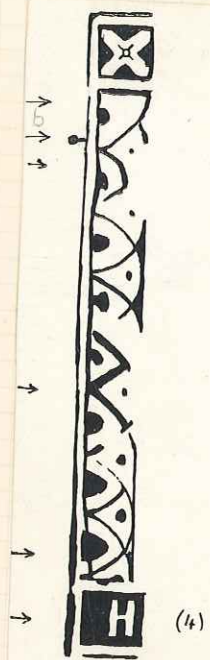 b
H
(4)